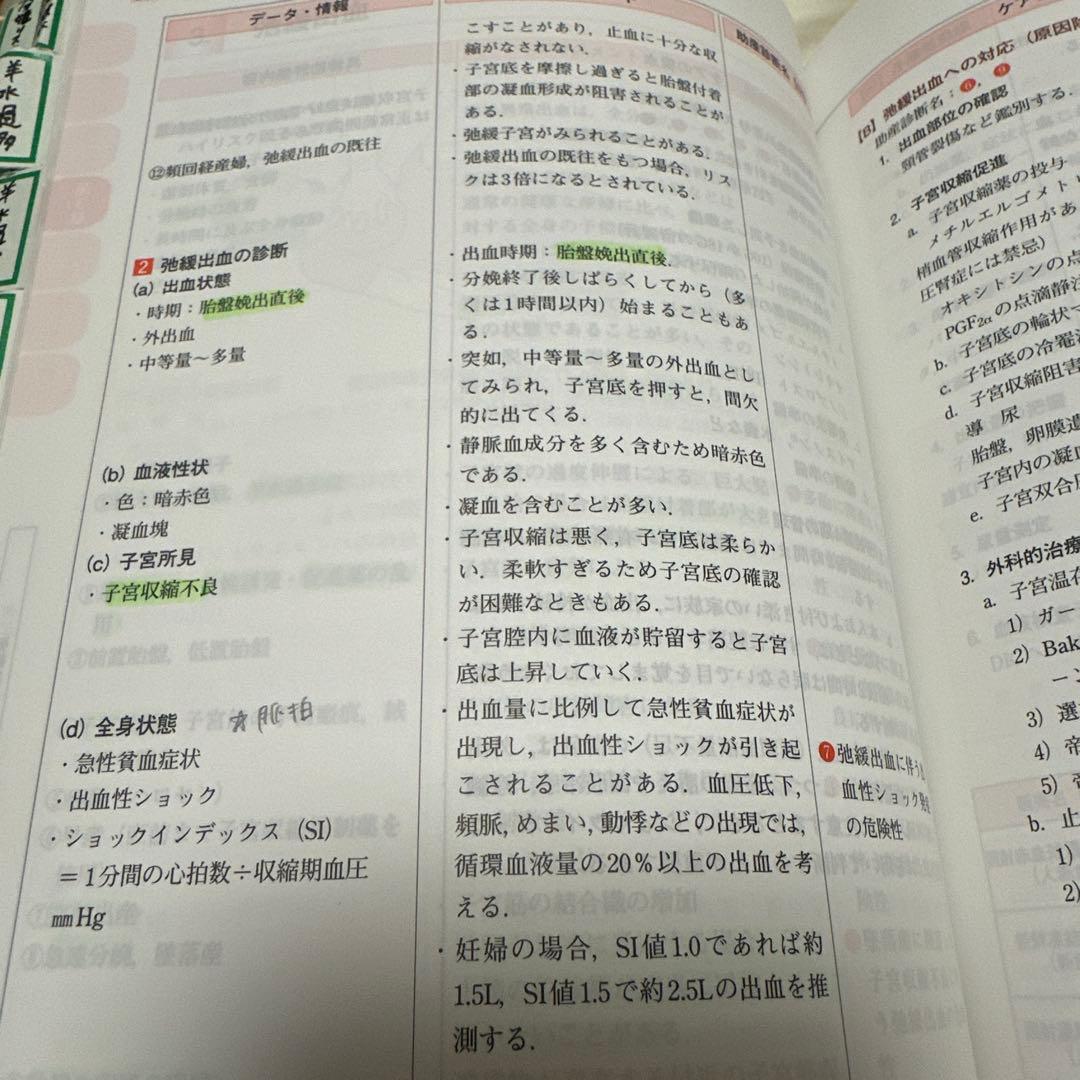 羊水過多
データ・情報
⑫頻回経産婦，弛緩出血の既往
2 弛緩出血の診断
(a) 出血状態
・時期：胎盤娩出直後
・外出血
・中等量～多量
(b) 血液性状
・色：暗赤色
・凝血塊
(c) 子宮所見
・子宮収縮不良
(d) 全身状態
・急性貧血症状
・出血性ショック
・ショックインデックス（SI）
＝1分間の心拍数÷収縮期血圧
mmHg
こすことがあり，止血に十分な収
縮がなされない．
・子宮底を摩擦し過ぎると胎盤付着
部の凝血形成が阻害されることが
ある．
・弛緩子宮がみられることがある．
・弛緩出血の既往をもつ場合，リス
クは3倍になるとされている．
・出血時期：胎盤娩出直後．
・分娩終了後しばらくしてから（多
くは1時間以内）始まることもあ
る．
・突如，中等量～多量の外出血とし
てみられ，子宮底を押すと，間欠
的に出てくる．
・静脈血成分を多く含むため暗赤色
である．
・凝血を含むことが多い．
・子宮収縮は悪く，子宮底は柔らか
い．柔軟すぎるため子宮底の確認
が困難なときもある．
・子宮腔内に血液が貯留すると子宮
底は上昇していく．
・出血量に比例して急性貧血症状が
出現し，出血性ショックが引き起
こされることがある．血圧低下，
頻脈，めまい，動悸などの出現では，
循環血液量の20％以上の出血を考
える．
・妊婦の場合，SI値1.0であれば約
1.5L，SI値1.5で約2.5Lの出血を推
測する．
❼弛緩出血に伴う
血性ショック
の危険性
ケア
[B] 弛緩出血への対応（原因
助産診断名：❻，❾
1. 出血部位の確認
頸管裂傷など鑑別する．
2. 子宮収縮促進
a. 子宮収縮薬の投与
メチルエルゴメト
梢血管収縮作用があ
圧腎症には禁忌）
オキシトシンの点
PGF2αの点滴静注
b. 子宮底の輪状マ
c. 子宮底の冷罨法
d. 子宮収縮阻害
導尿
胎盤，卵膜遺
子宮内の凝
e. 子宮双合
3. 外科的治療
a. 子宮温存
1) ガー
2) Bak
ーン
3) 選
4) 帝
5)
b. 止
1)
2)